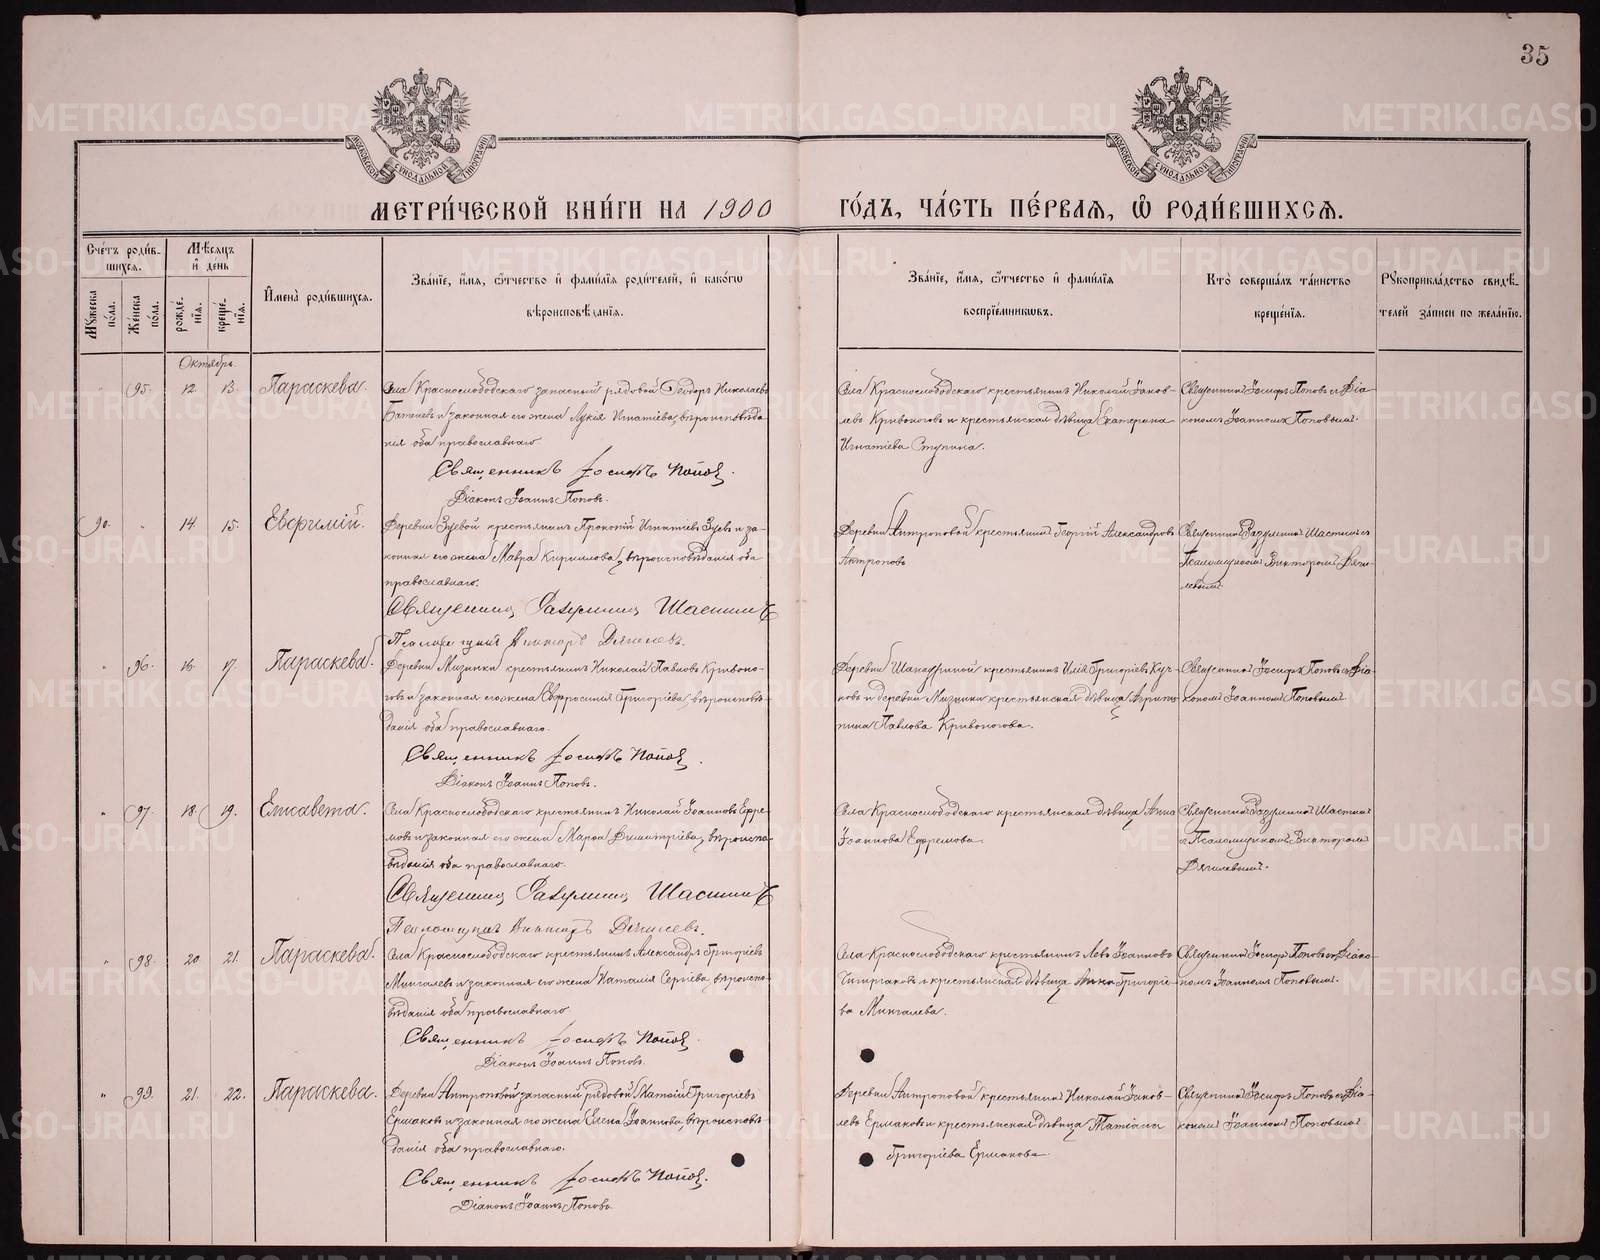 35
МОСКОВСКОЙ СѴНОДАЛЬНОЙ ТИПОГРАФІИ
МОСКОВСКОЙ СѴНОДАЛЬНОЙ ТИПОГРАФІИ
МЕТРИ́ЧЕСКОЙ КНИ́ГИ НА 1900 ГО́ДЪ, ЧА́СТЬ ПЕ́РВАѦ, Ѽ РОДИ́ВШИХСѦ.
Сче́тъ роди́в-
шихсѧ.
Мꙋжеска по́ла.
Же́нска по́ла.
Мѣ́сѧцъ и҆ де́нь
рожде́-
нїѧ.
креще́-
нїѧ.
И҆мена̀ роди́вшихсѧ.
Зва́нїе, и҆́мѧ, ѻ҆́тчество и҆ фами́лїѧ роди́телей, и҆ како́гѡ
вѣроисповѣ́данїѧ.
Зва́нїе, и҆́мѧ, ѻ҆́тчество и҆ фами́лїѧ
воспрїе́мникѡвъ.
Кто̀ соверша́лъ та́инство
креще́нїѧ.
Рꙋкоприкла́дство свидѣ́-
телей за́писи по жела́нїю.
Октябрь.
" 95. 12 13. Параскева.
Села Краснослободскаго запасный рядовой Ѳеодоръ Николаевъ
Батеневъ и законная его жена Лукія Игнатіева, вѣроисповѣда-
нія оба православнаго
Священникъ Іосифъ Поповъ.
Діаконъ Іоаннъ Поповъ.
Села Краснослободскаго крестьянинъ Николай Іаков-
левъ Кривоноговъ и крестьянская дѣвица Екатерина
Игнатіева Ступина.
Священникъ Іосифъ Поповъ съ Діа-
кономъ Іоанномъ Поповымъ.
90. " 14 15. Евѳимій.
Деревни Зуевой крестьянинъ Прокопій Игнатіевъ Зуевъ и за-
конная его жена Мавра Кириллова, вѣроисповѣданія оба
православнаго.
Священникъ Шастинъ
Псаломщикъ Викторъ Дягилевъ.
Деревни Антроповой крестьянинъ Георгій Александровъ
Антроповъ
Священникъ Шастинъ съ
Псаломщикомъ Викторомъ Дяги-
левымъ.
" 96. 16. 17. Параскева.
Деревни Мизинки крестьянинъ Николай Павловъ Кривоно-
говъ и законная его жена Евфросинія Григоріева, вѣроисповѣ-
данія оба православнаго.
Священникъ Іосифъ Поповъ.
Діаконъ Іоаннъ Поповъ.
Деревни крестьянинъ Илія Григоріевъ
и деревни Мизинки крестьянская дѣвица Агрип-
пина Павлова Кривоногова.
Священникъ Іосифъ Поповъ съ Діа-
кономъ Іоанномъ Поповымъ
" 97. 18 19. Елисавета.
Села Краснослободскаго крестьянинъ Николай Іоанновъ Ефре-
мовъ и законная его жена Марѳа Димитріева, вѣроиспо-
вѣданія оба православнаго.
Священникъ Шастинъ
Псаломщикъ Викторъ Дягилевъ.
Села Краснослободскаго крестьянская дѣвица Анна
Іоаннова Ефремова.
Священникъ Шастинъ
съ Псаломщикомъ Викторомъ
Дягилевымъ.
" 98. 20 21. Параскева.
Села Краснослободскаго крестьянинъ Александръ Григоріевъ
Мингалевъ и законная его жена Наталія Сергіева, вѣроиспо-
вѣданія оба православнаго.
Священникъ Іосифъ Поповъ.
Діаконъ Іоаннъ Поповъ.
Села Краснослободскаго крестьянинъ Левъ Іоанновъ
и крестьянская дѣвица Анна Григоріе-
ва Мингалева.
Священникъ Іосифъ Поповъ съ Діако-
номъ Іоанномъ Поповымъ.
" 99. 21. 22. Параскева.
Деревни Антроповой запасный рядовой Григоріевъ
Ермаковъ и законная его жена Елена Іоаннова, вѣроисповѣ-
данія оба православнаго.
Священникъ Іосифъ Поповъ.
Діаконъ Іоаннъ Поповъ.
Деревни Антроповой крестьянинъ Николай Іаков-
левъ Ермаковъ и крестьянская дѣвица Татіана
Григоріева Ермакова.
Священникъ Іосифъ Поповъ съ Діа-
кономъ Іоанномъ Поповымъ
METRIKI.GASO-URAL.RU